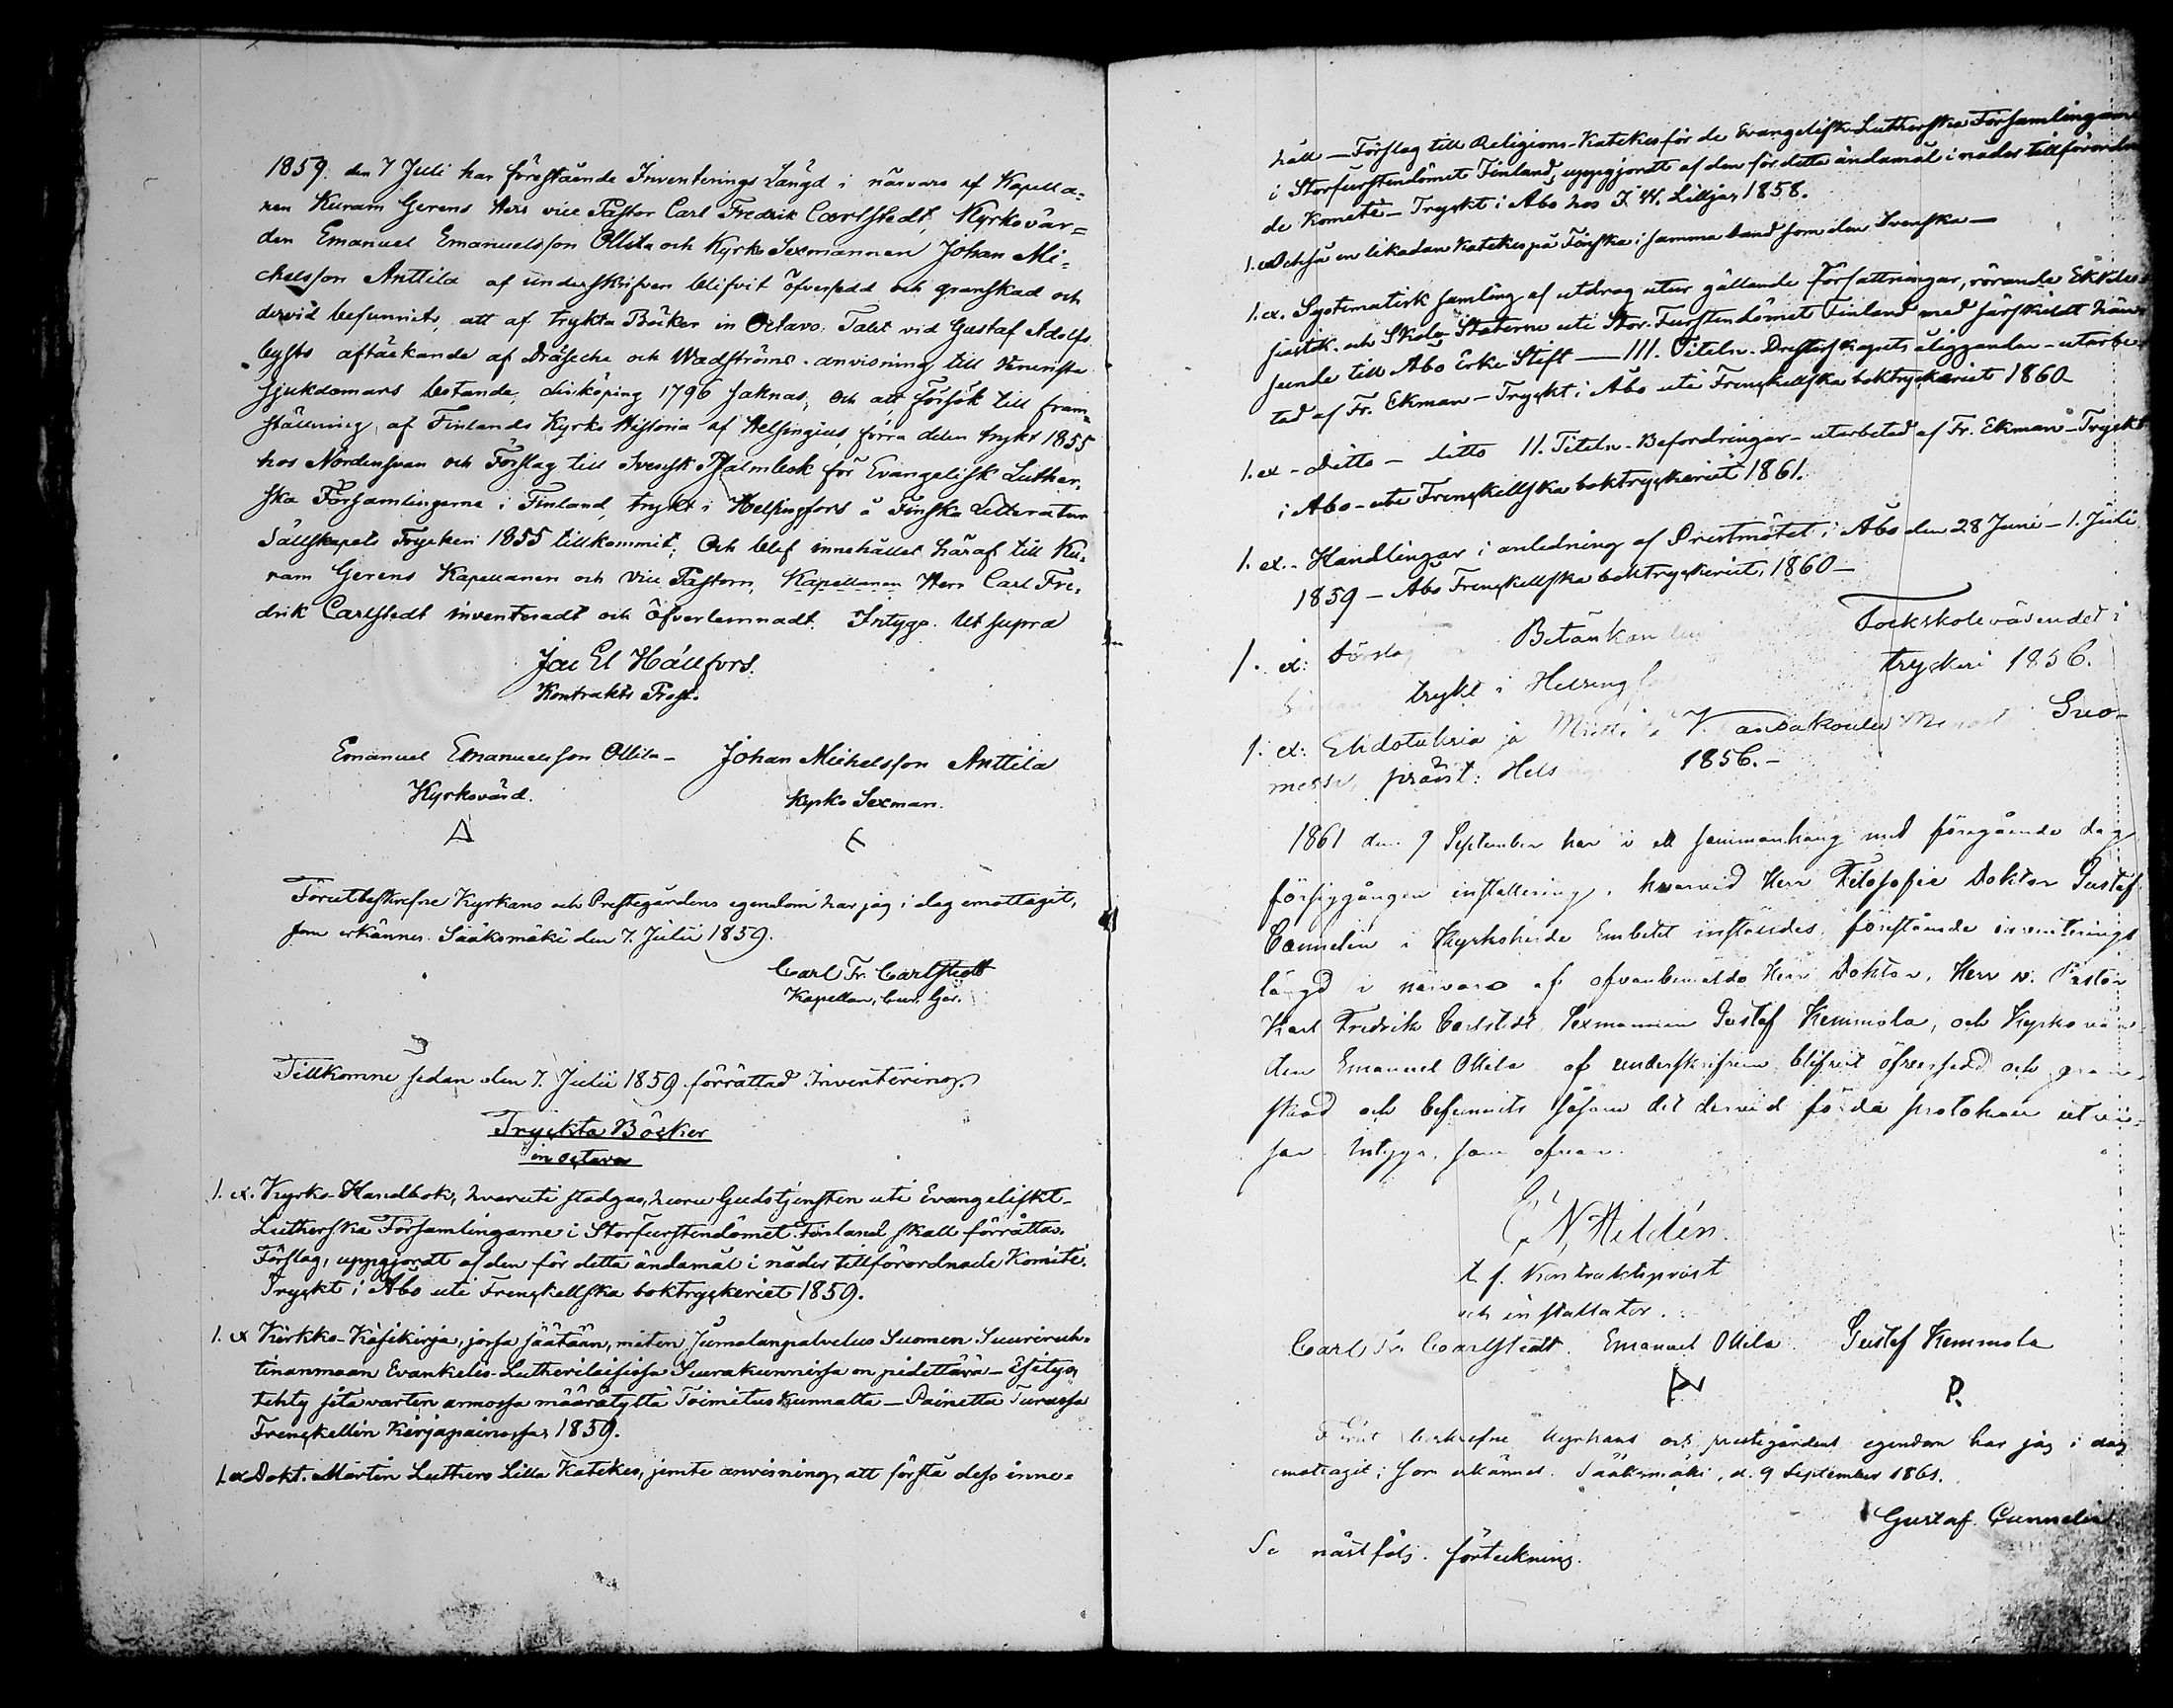 1859. den 7 Juli har föreståcnde Inventerings Längd i närvaro af Kapella=
nen Kuram Gerens Herr vice Pastor Carl Fredrik Carlstedt, Kyrkovär=
den Emanuel Emanuelsson Ollila och Kyrko Sexmannen Johan Mi=
chelsson Anttila af underskrifven blifvit öfversedd och granskad och
dervid befunnits, att af tryckta Böcker in Octavo. Talet vid Gustaf Adolfs
bysts aftäckande af Dräseche och Wadströms anvisning till Veneriska
sjukdomars botande, Linköping 1796 saknas; Och att försök till fram=
ställning af Finlands Kyrko Historia af Helsingius, förra delen trykt 1855
hos Nordensvan och Förslag till Svensk Psalmbok för Evangelisk Luther=
ska Församlingarne i Finland, trykt i Helsingfors å Finska Litteratur
Sällskapets Tryckeri 1855 tillkommit; Och blef innehållet häraf till Ku=
ram Gerens Kapellanen och Vice Pastorn, Kapellanen Herr Carl Fre=
drik Carlstedt inventeradt och öfverlemnadt. Intygar Ut supra
Jac El Hällfors.
Kontrakts Prost.
Emanuel Emanuelsson Ollila - Johan Michelsson Anttila
Kyrkovärd. Kyrko Sexman.
Förutbeskrefne Kyrkans och Prestegårdens egendom har jag i dag emottagit,
som erkännes. Sääksmäki den 7. Julii 1859.
Carl Fr. Carlstedt
Kapellan, Cur. Ger.
Tillkomne sedan den 7. Julii 1859 förrättad Inventering.
Tryckta Böcker
in octavo
1. ex. Kyrko-Handbok, hvaruti stadgas, huru Gudstjensten uti Evangeliskt-
Lutherska Församlingarne i Storfurstendömet Finland skall förrättas.
Förslag, uppgjordt af den för detta ändamål i nåder tillförordnade Komité.
Tryckt i Åbo uti Frenckellska boktryckeriet 1859.
1. ex Kirkko-Käsikirja, jossa säätään, miten Jumalanpalvelus Suomen Suuriruh=
tinanmaan Evankelis-Lutherilaisissa Seurakunnissa on pidettävä - Esitys,
tehty sitä warten armossa määrätyltä Toimitus Kunnalta - Painettu Turussa
Frenckellin Kirjapainossa, 1859.
1. ex Dokt. Martin Luthers Lilla Katekes, jemte anvisning, att förstå dess inne=
håll - Förslag till Religions-Katekes för de Evangelisk Lutherska Församlingarne
i Storfurstendömet Finland, uppgjordt af den för detta ändamål i nåder tillförordna
de Komité - Tryckt i Åbo hos J. W. Lillja, 1858.
1. ex Också en likadan Katekes på Finska i samma band som den Svenska -
1. ex. Systematisk samling af utdrag utur gällande författningar, rörande Ekkle=
siastik- och Skolo-Staterne uti Stor-Furstendömet Finland med särskildt hän=
seende till Åbo Erke-Stift - III. Titeln. Presterskapets åligganden - utarbe=
tad af Fr. Ekman - Tryckt i Åbo uti Frenckellska boktryckeriet 1860 -
1. ex - Ditto - ditto II. Titeln - Befordringar - utarbetad af Fr. Ekman - Tryckt
i Åbo - uti Frenckellska boktryckeriet 1861.
1. ex. - Handlingar i anledning af Prestmötet i Åbo den 28 Juni - 1. Juli
1859 - Åbo Frenckellska boktryckeriet, 1860 -
1. ex: Förslag Betänkan Folkskoleväsendet i
trykt i Helsingf tryckeri 1856.
1. ex: Ehdotuksia ja Miett Kansakoulu Suo-
messa, präint: Hels 1856. -
1861 den 9 September har i ett sammanhang med föregående dag
försiggången installering, hvarvid Herr Filosofie Doktor Gustaf
Cannelin i Kyrkoherde Embetet inställdes, föreståcnde inventerings
längd i närvaro af ofvanbemälde Herr Doktor, Herr v. Pastor
Karl Fredrik Carlstedt, Sexmannen Gustaf Kemmola, och Kyrkovär
den Emanuel Ollila af underskrifven blifvit öfversedd och gran
skad och befunnits såsom det dervid förda protokoll utvi=
sar. Intygar, som ofvan.
E. N. Hildén.
t. f. Kontraktsprost
och installator.
Carl Fr. Carlstedt. Emanuel Ollila Gustaf Kemmola
P.
Förut beskrefne kyrkans och prestegårdens egendom har jag i dag
emottagit; som erkännes. Sääksmäki, d. 9 September 1861.
Gustaf Cannelin.
Se näst följ. förteckning.